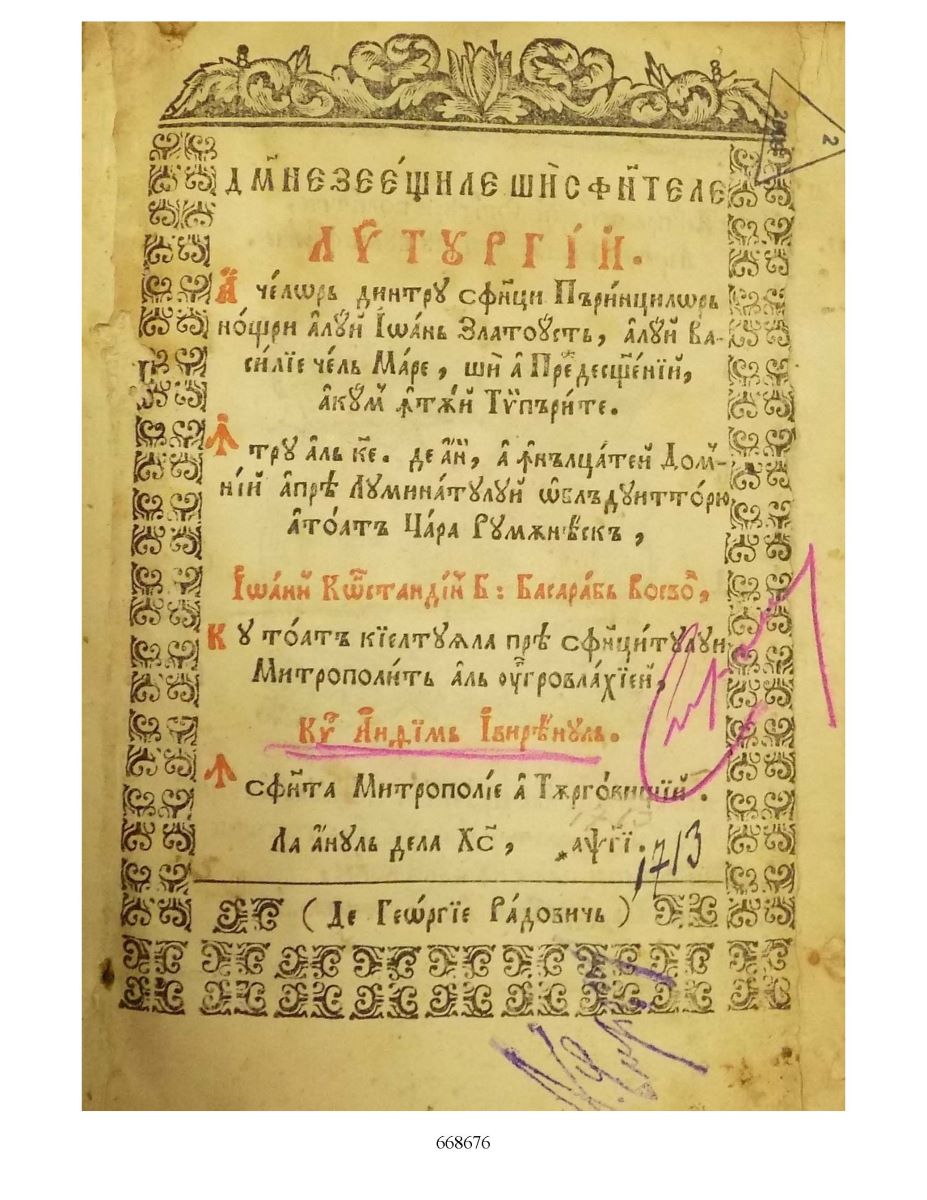 ДМ҃НЕЗЕЕ́ЩИЛЕ ШЍ СФИ҃ТЕЛЕ
ЛꙊ҆ТꙊРГІ́Й.
А҆ че́лѡрь динтрꙋ сфи҃ци Пъри́нцилѡрь
но́щри а҆лꙋй І҆ѡа́нь Златоꙋсть, а҆лꙋй Ва-
си́лїе че́ль Ма́ре, шѝ а҆ Преⷣдесщ҃е́нїй,
а҆кꙋ́мꙿ ꙟтѫ́й Тѵпъри́те.
Ꙟ тру а҆ль к҃е. де а҆н҃, а҆ ꙟнълца́тей Дом-
ні́й а҆прѣ Лꙋмина́тꙋлꙋй ѡ҆блъдꙋитто́рю
а҆то́атъ Ца́ра Рꙋмѫнѣ́скъ,
І҆ѡа́нꙿ Кѡⷩстандíнꙿ Б: Басара́бь Воево́ⷣ,
Кꙋ то́атъ кїелтꙋꙗла прѣ сфи҃цитꙋлꙋи
Митрополи́ть а҆ль ᲂу҆гровла́хїей,
Кѵⷬ҇ А҆нѳі́мь І҆вирѣ́нꙋль.
Ꙟ сфи҃та Митрополі́е а҆ Тѫрго́вищїй.
1713
Ла а҆́нꙋль дела Хс҃, ҂аѱг҃і.
1713
( Де Гео́ргїе Ра́довичь )
2
668676